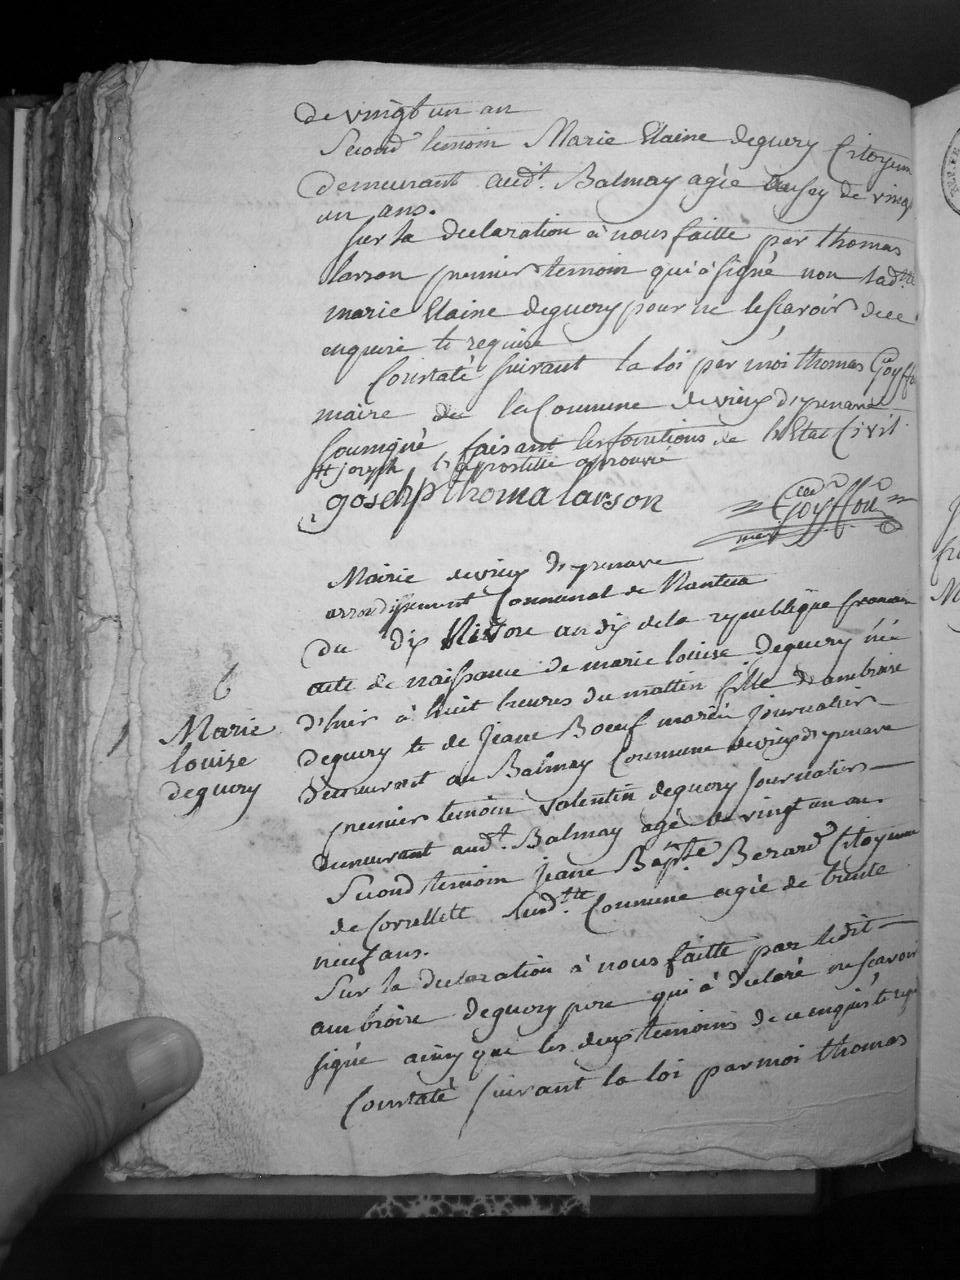 de vingt un an
Second temoin Marie Elaine deguery Citoyenne
Demeurant aud.t Balmay agée aussy de vingt
un ans.
sur la declaration a nous faitte par thomas
larson premier temoin qui a signé non lad.tte
marie Elaine deguery pour ne le scavoir de ce
enquise et requise
Constaté suivant la loi par moi thomas Goyffon
maire de la Commune de vieux d'izenave
soussigné faisant les fonctions de l'Etat Civil
joseph l'apostille aprouvé
joseph thoma larson
Goyffon
mer
Mairie de vieux d'izenave
arrondissement Communal de Nantua
du dix Nivose an dix de la republique francaise
acte de naissance de marie louise deguery née
d'hier à huit heures du mattin fille d'ambroise
deguery et de jeane Boeuf mariéz journalier
demeurant au Balmay Commune de vieux d'izenave
premier temoin valentin deguery journalier
demeurant aud.t Balmay agé de vingt un an
Second temoin jeane Bap.te Berard Citoyenne
de Corcellette susd.tte Commune agée de trente
neuf ans.
Sur la declaration à nous faitte par ledit
ambroise deguery pere qui à declaré ne scavoir
signé ainsy que les deux temoins de ce enquis et requis
Constaté suivant la loi par moi thomas
6
Marie
louise
deguery